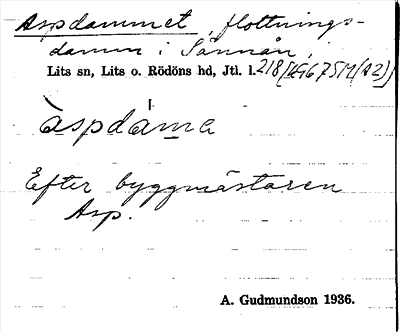 Aspdammet, flottnings-
damm i Sännån,
Lits sn, Lits o. Rödöns hd, Jtl. l.
àspdáma
Efter byggmästaren
Asp.
A. Gudmundson 1936.